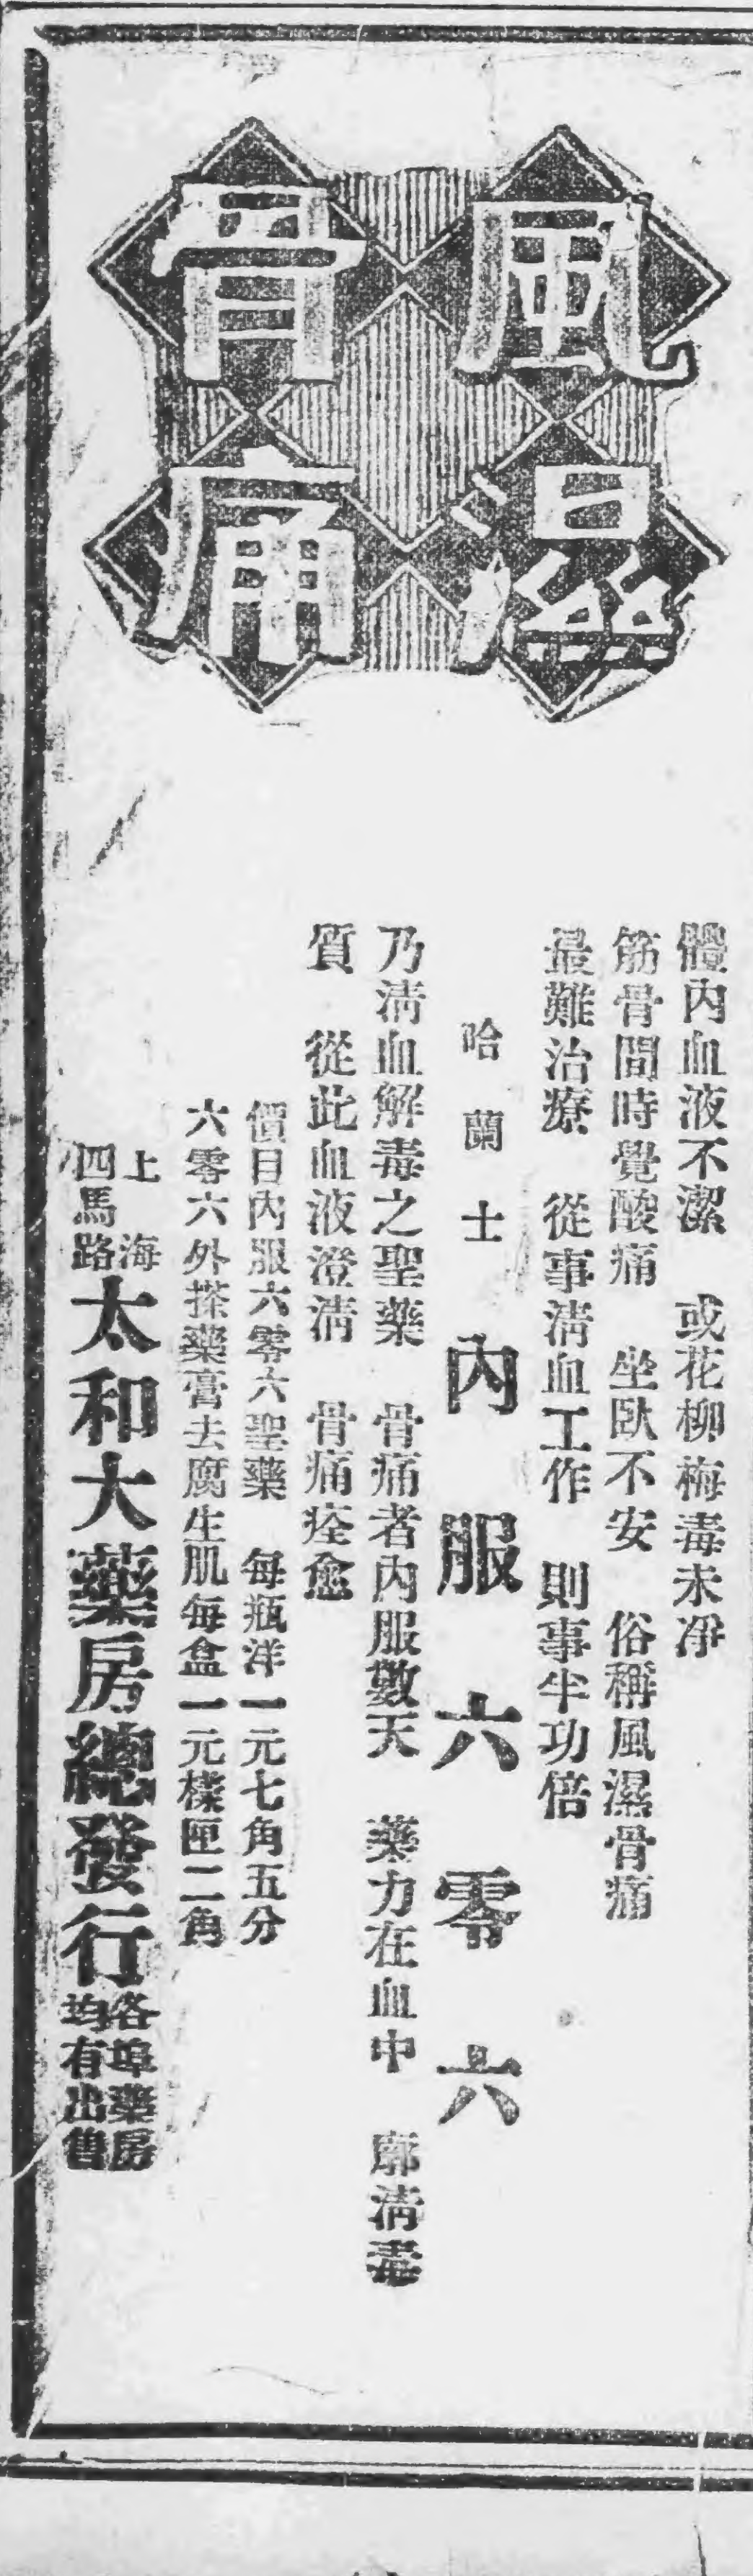 風濕
骨痛
體內血液不潔　或花柳梅毒未净
筋骨間時覺酸痛　坐臥不安　俗稱風濕骨痛
最難治療　從事淸血工作　則事半功倍
哈蘭士內服六零六
乃淸血解毒之聖藥　骨痛者內服數天　藥力在血中　廓淸毒
質　從此血液澄淸　骨痛痊愈
價目內服六零六聖藥　每瓶洋一元七角五分
六零六外搽藥膏去腐生肌每盒一元樣匣二角
上海
四馬路
太和大藥房總發行
各埠藥房
均有出售